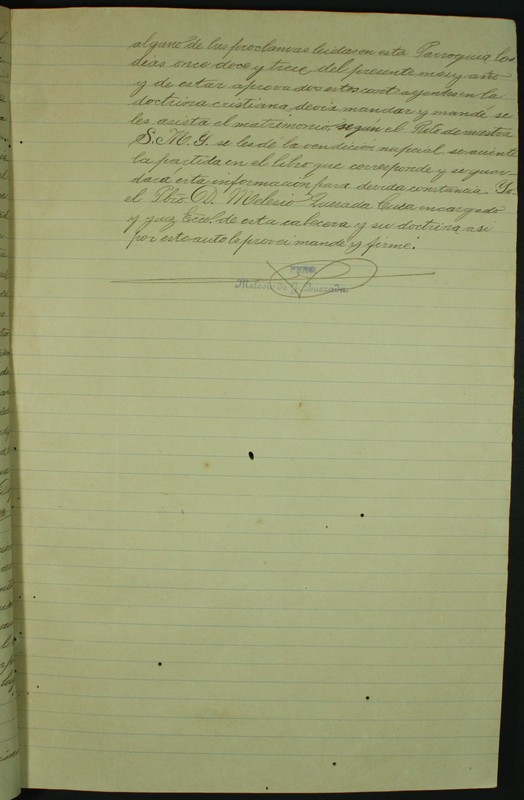 alguno de las proclamas leidas en esta Parroquia los
dias once doce y trece del presente mes y año
y de estar aprovados estos contrayentes en la
doctrina cristiana, devia mandar y mandé se
les asista el matrimonio, según el Rito de nuestra
S. M. Y. se les dé la vendición nupcial se aciente
la partida en el libro que corresponde y se guar-
dará esta información para devida constancia. Yo
el Pbro D. Melesio Quezada Cura encargado
y juez Ecco. de esta cabecera y su doctrina asi
por este auto lo proveí mandé y firmé.
PBRO.
Melesio de J. Quezada.